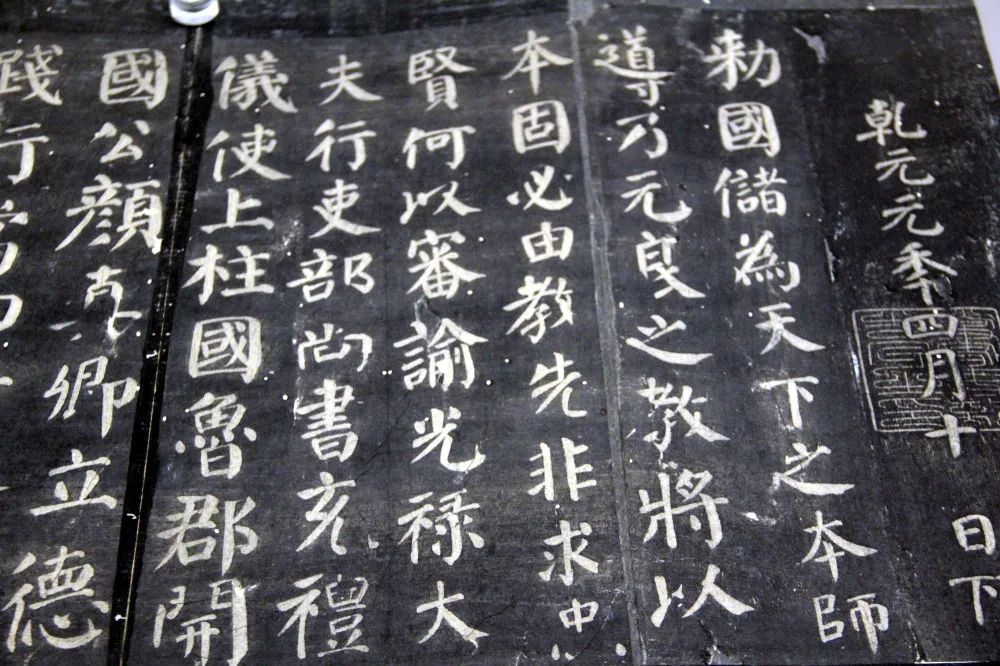 乾元元秊四月十日下
勅國儲為天下之本師
導乃元良之教將以
本固必由教先非求忠
賢何以審諭光禄大
夫行吏部尚書充禮
儀使上柱國魯郡開
國公顏真卿立德
踐行當四